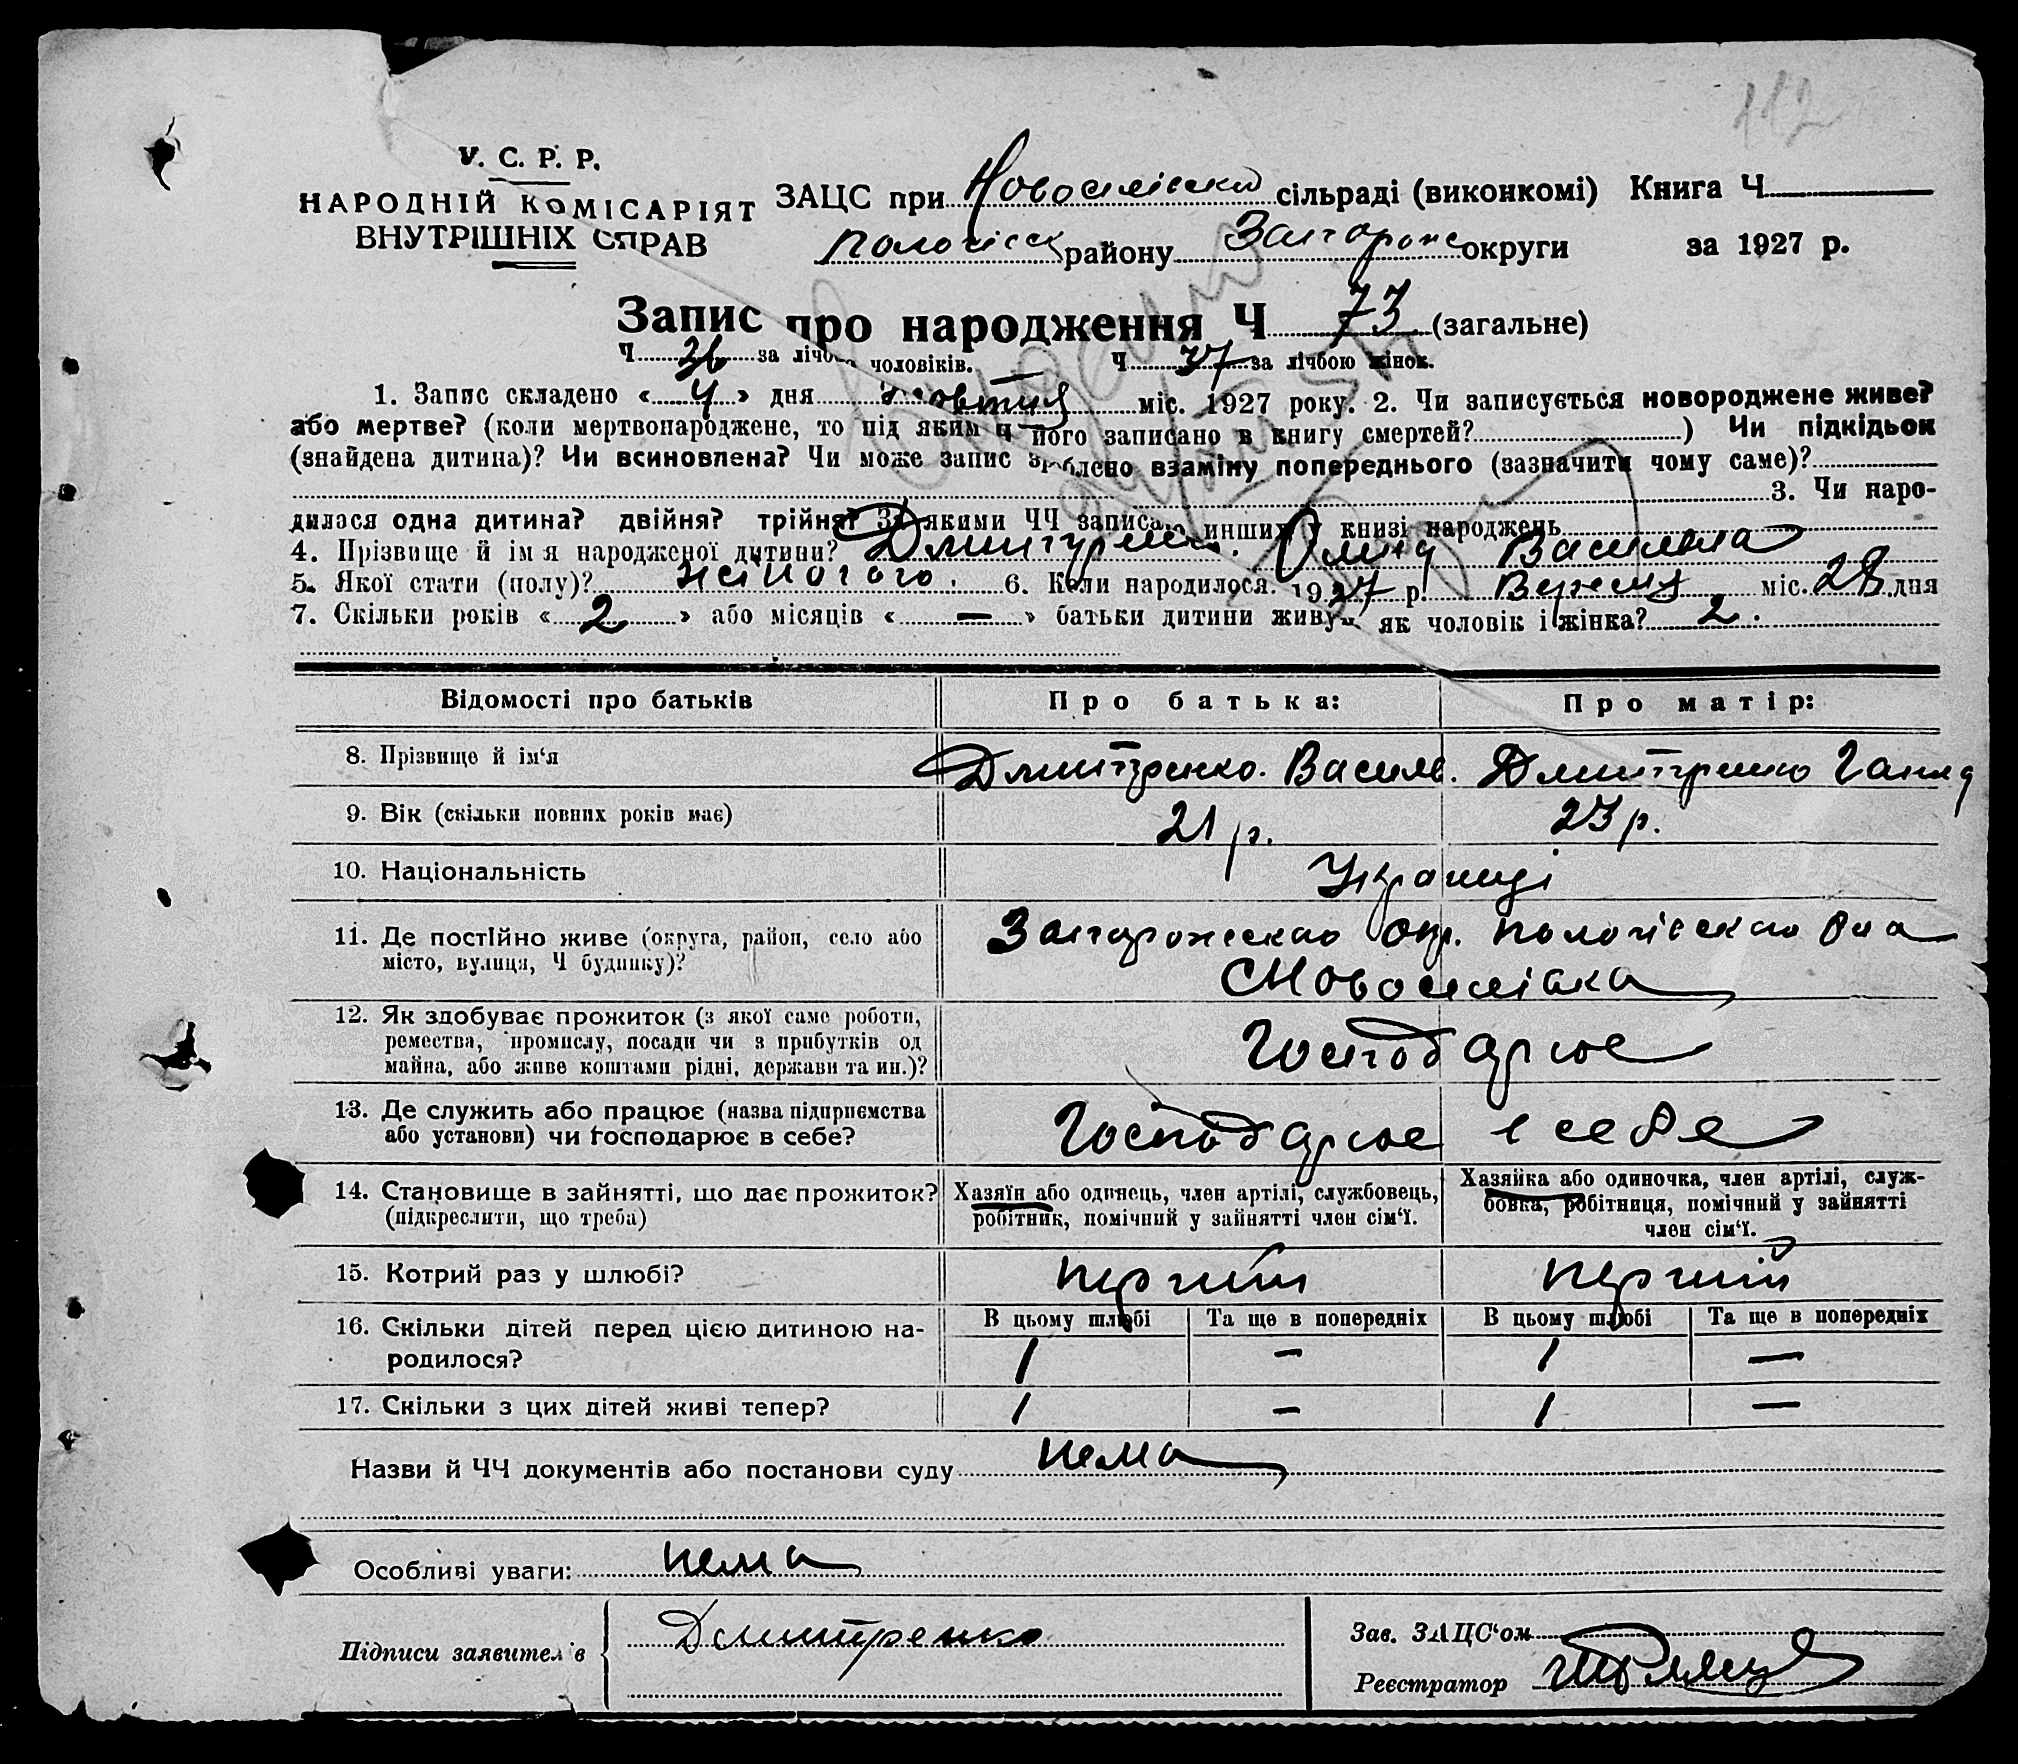 112
У. С. Р. Р.
НАРОДНІЙ КОМІСАРІЯТ
ВНУТРІШНІХ СПРАВ
ЗАЦС при Новоселівскій сільраді (виконкомі) Книга Ч
Пологівск району Запорожс округи за 1927 р.
Запис про народження Ч 73 (загальне)
Ч 36 за лічбою чоловіків. Ч 37 за лічбою жінок.
1. Запис складено « 4 » дня Жовтня міс. 1927 року. 2. Чи записується новороджене живе?
або мертве? (коли мертвонароджене, то під яким Ч його записано в книгу смертей? ) Чи підкідьок
(знайдена дитина)? Чи всиновлена? Чи може запис зроблено взаміну попереднього (зазначити чому саме)?
3. Чи наро-
дилася одна дитина? двійня? трійня? За якими ЧЧ записано инших у книзі народжень
4. Прізвище й ім'я народженої дитини? Дмитренко. Василівна
5. Якої стати (полу)? жіночого. 6. Коли народилося. 1927 р. Вересня міс. 28 дня
7. Скільки років « 2 » або місяців « — » батьки дитини живуть як чоловік і жінка? 2.
Відомості про батьків Про батька: Про матір:
8. Прізвище й ім'я Дмитренко. Василь. Дмитренко Ганна
9. Вік (скільки повних років має) 21 р. 23 р.
10. Національність Українці
11. Де постійно живе (округа, район, село або Запорожскаго окр. Пологівскаго Р-на
місто, вулиця, Ч будинку)? С Новоселівка
12. Як здобуває прожиток (з якої саме роботи,
ремества, промислу, посади чи з прибутків од Господарює
майна, або живе коштами рідні, держави та ин.)?
13. Де служить або працює (назва підприємства
або установи) чи господарює в себе? Господарює в себе
14. Становище в зайнятті, що дає прожиток? Хазяїн або одинець, член артілі, службовець, Хазяйка або одиночка, член артілі, служ-
(підкреслити, що треба) робітник, помічний у зайнятті член сім'ї. бовка, робітниця, помічний у зайнятті
член сім'ї.
15. Котрий раз у шлюбі? перший перший
16. Скільки дітей перед цією дитиною на- В цьому шлюбі Та ще в попередніх В цьому шлюбі Та ще в попередніх
родилося? 1 — 1 —
17. Скільки з цих дітей живі тепер? 1 — 1 —
Назви й ЧЧ документів або постанови суду нема
Особливі уваги: нема
Підписи заявителів Дмитренко
Зав. ЗАЦС'ом
Реєстратор